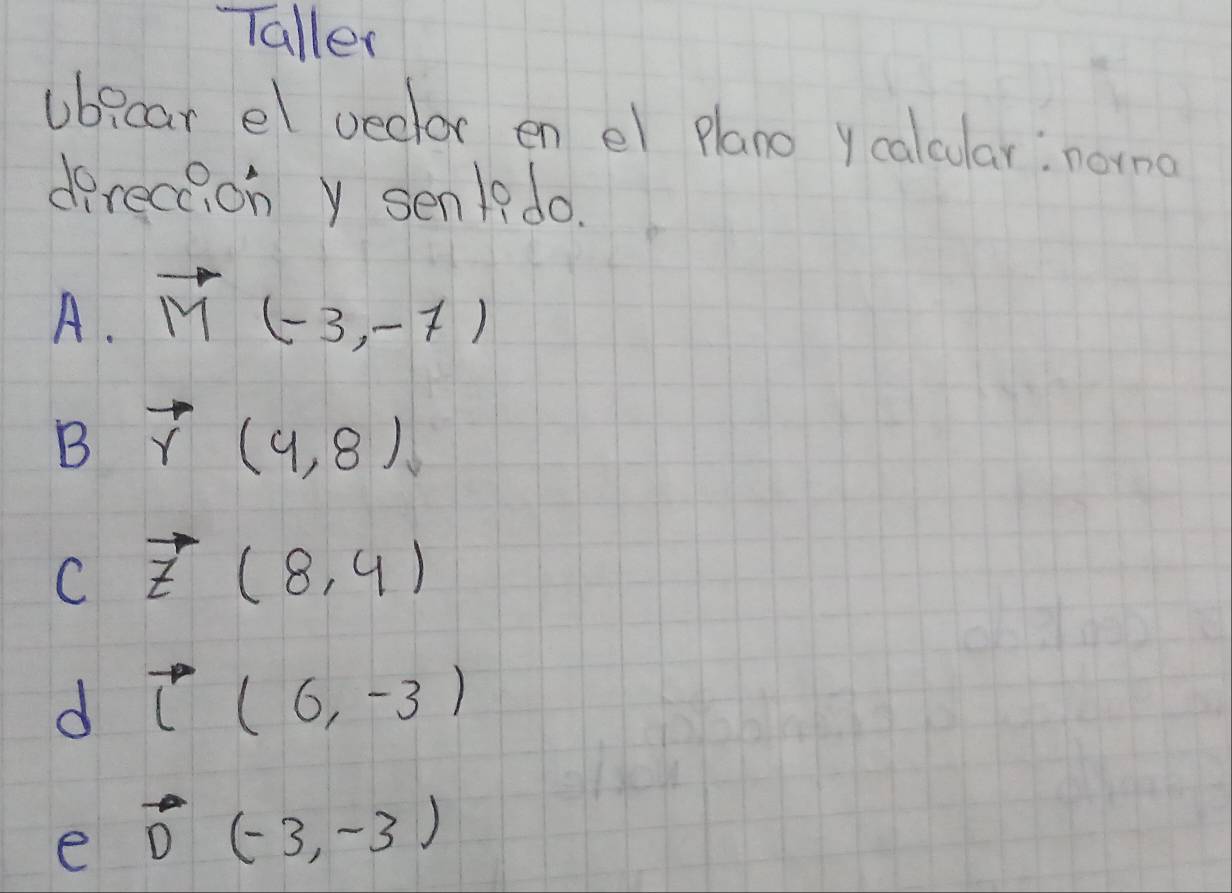 Taller
Ubicar el vector en el plano y calcular: norma
dirección y sentido.
A. M (-3,-7)
B r (4,8).
C Z (8,4)
d l (6,-3)
e D (-3,-3)